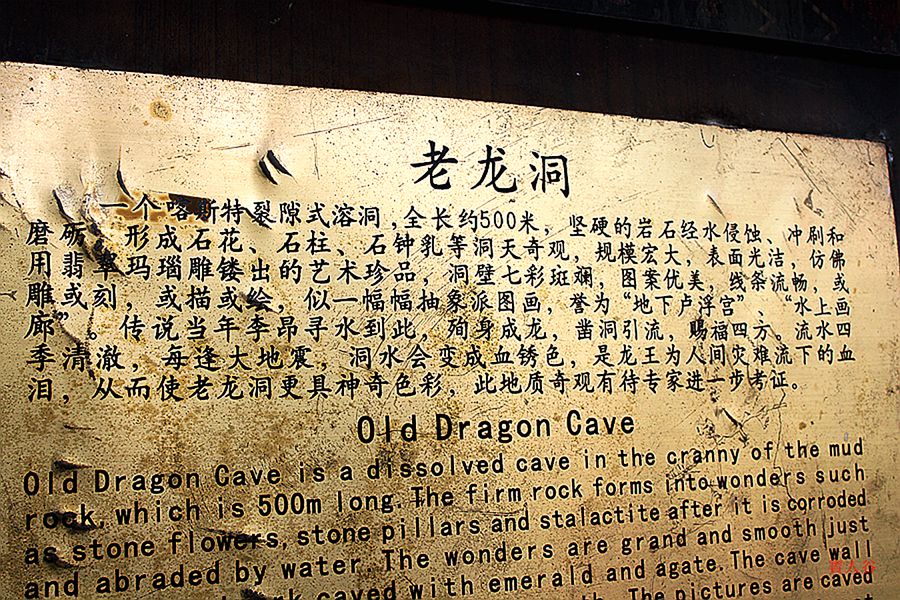 老龙洞
一个喀斯特裂隙式溶洞，全长约500米，坚硬的岩石经水侵蚀、冲刷和
磨砺，形成石花、石柱、石钟乳等洞天奇观，规模宏大，表面光洁，仿佛
用翡翠玛瑙雕镂出的艺术珍品，洞壁七彩斑斓，图案优美，线条流畅，或
雕或刻，或描或绘，似一幅幅抽象派图画，誉为“地下卢浮宫”、“水上画
廊”。传说当年李昂寻水到此，殉身成龙，凿洞引流，赐福四方。流水四
季清澈，每逢大地震，洞水会变成血锈色，是龙王为人间灾难流下的血
泪，从而使老龙洞更具神奇色彩，此地质奇观有待专家进一步考证。
Old Dragon Cave
Old Dragon Cave is a dissolved cave in the cranny of the mud
rock, which is 500m long. The firm rock forms into wonders such
as stone flowers, stone pillars and stalactite after it is corroded
and abraded by water. The wonders are grand and smooth just
caved with emerald and agate. The cave wall
The pictures are caved